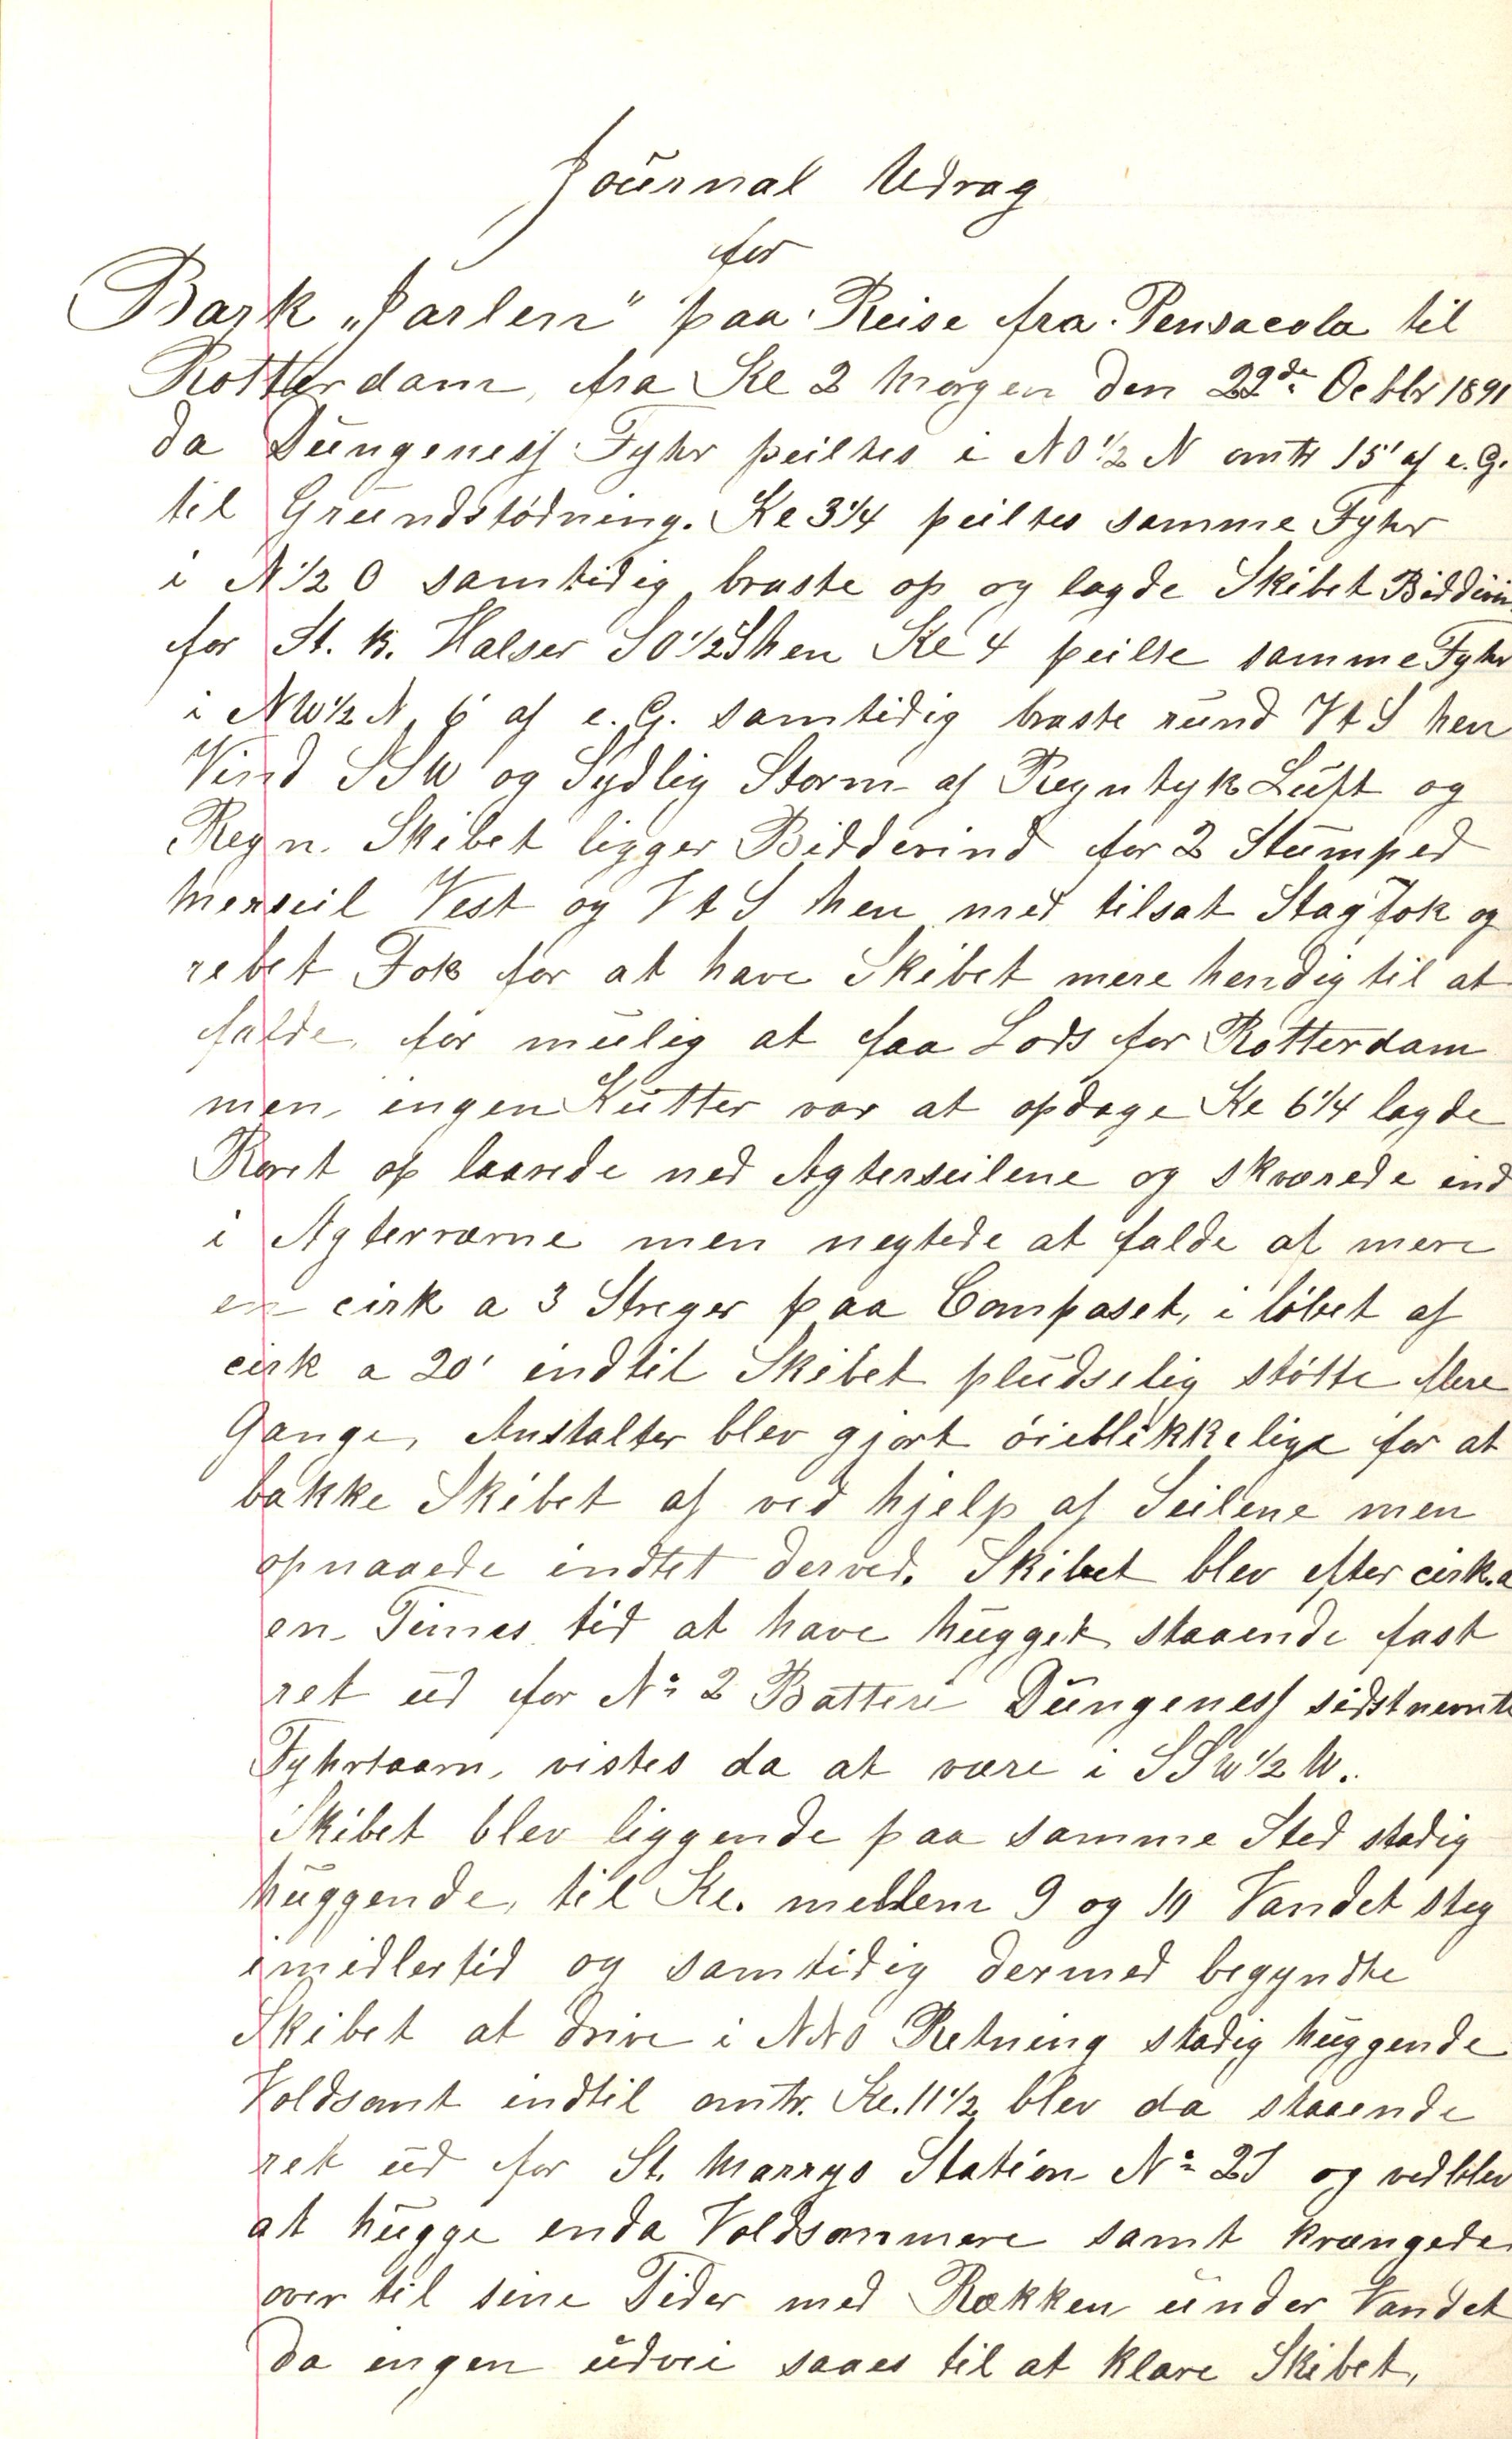 Journal Udrag
for
Bark „Jarlen" paa Reise fra Pensacola til
Rotterdam, fra Kl 2 Morgen den 22de Octbr 1891
da Dungeness Fyhr peiltes i NO ½ N omtr 15' af e. G.
til Grundstödning. Kl 3¼ peiltes samme Fyhr
i N ½ O samtidig braste op og lagde Skibet Biddevin
for St. B. Halser SO ½ S hen Kl 4 peilte samme Fyhr
i NW ½ N, 6' af e. G. samtidig braste rund V t S hen
Vind SSW og Sydlig Storm af Regntyk Luft og
Regn. Skibet ligger Biddevind for 2 Stumped
Merseil Vest og V t S hen med tilsat Stagfok og
rebet Fok for at have Skibet mere hendig til at
falde, for mulig at faa Lods for Rotterdam
men ingen Kutter var at opdage Kl 6¼ lagde
Roret op laarede ned Agterseilene og skvarede ind
i Agterrærne men negtede at falde af mere
en cirk a 3 Streger paa Compaset, i löbet af
cirk a 20' indtil Skibet pludselig stötte flere
Gange, Anstalter blev gjort öieblikkelige for at
bakke Skibet af ved hjelp af Seilene men
opnaaede indtet derved. Skibet blev efter cirk. a
en Times tid at have hugget staaende fast
ret ud for No 2 Batteri Dungeness sidstnevnte
Fyhrtaarn, vistes da at være i SSW ½ W.
Skibet blev liggende paa samme Sted stadig
huggende, til Kl. mellem 9 og 10 Vandet steg
imidlertid og samtidig dermed begyndte
Skibet at drive i NNO Retning stadig huggende
Voldsomt indtil omtr. Kl. 11½ blev da staaende
ret ud for St. Marrys Station No 27 og vedblev
at hugge enda Voldsommere samt krængede
over til sine Tider med Rækken under Vandet
da ingen udvei saaes til at klare Skibet,